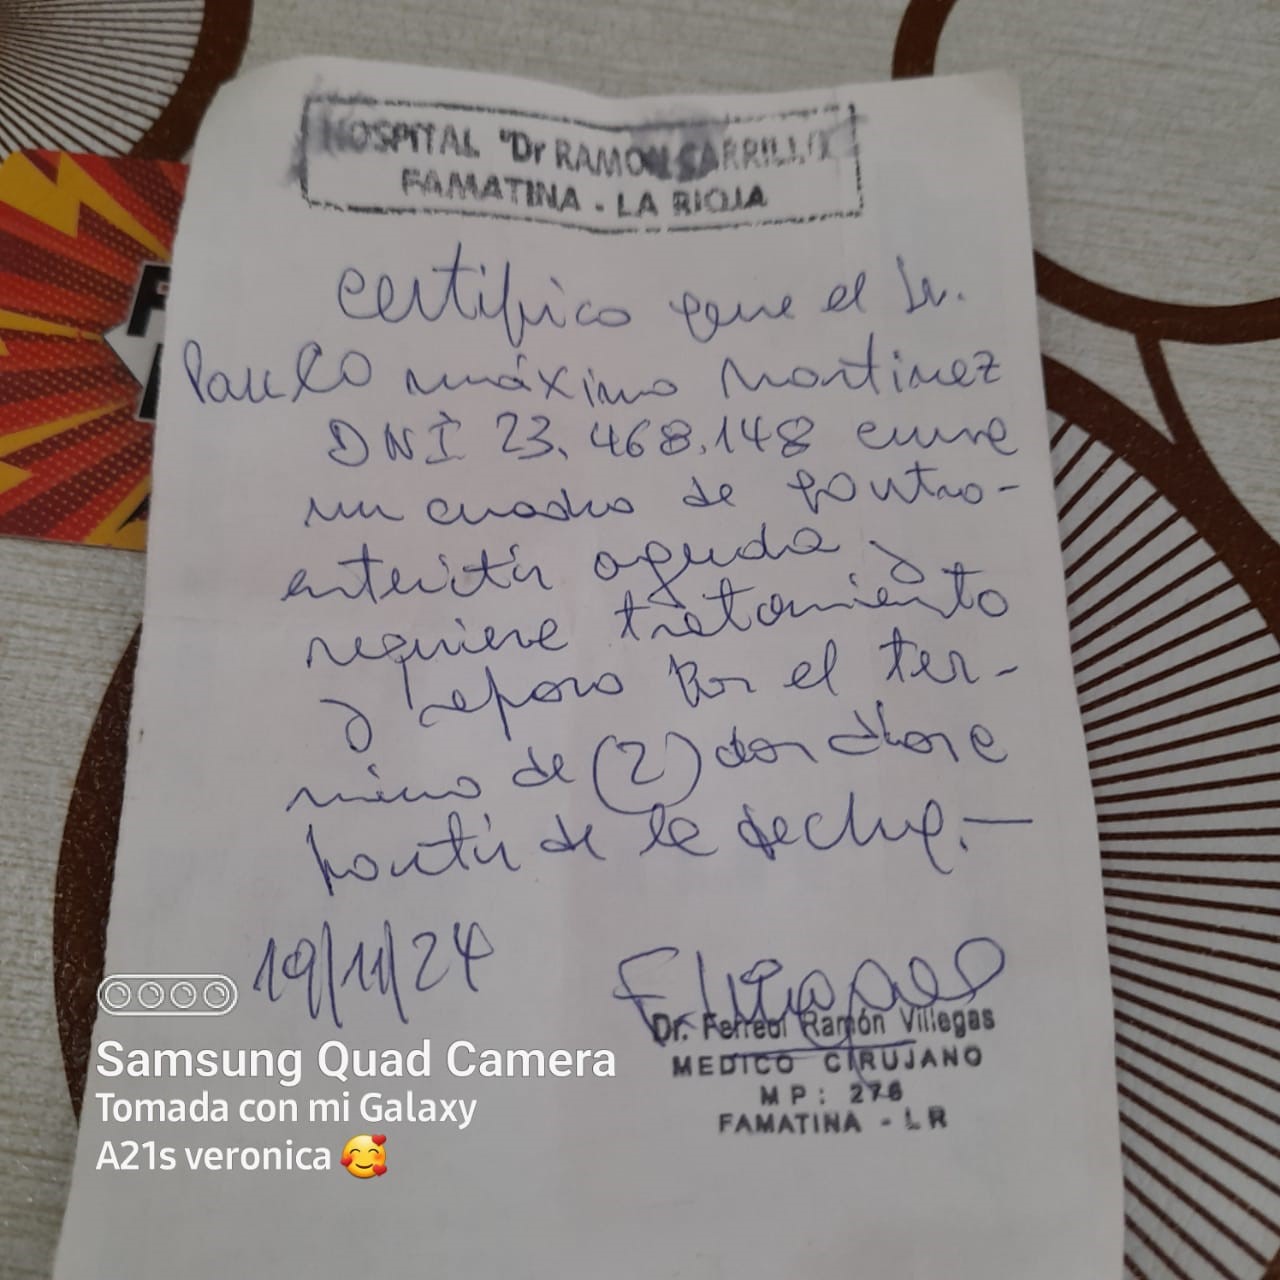 HOSPITAL "Dr RAMON CARRILLO"
FAMATINA - LA RIOJA
Certifico que el Sr.
Paulo máximo Martinez
DNI 23.468.148 cursa
un cuadro de gastro-
enteritis aguda y
requiere tratamiento
y reposo por el ter-
mino de (2) dos días a
partir de la fecha.—
19/11/24
Dr. Ferreol Ramón Villegas
MEDICO CIRUJANO
MP: 276
FAMATINA - LR
Samsung Quad Camera
Tomada con mi Galaxy
A21s veronica 🥰